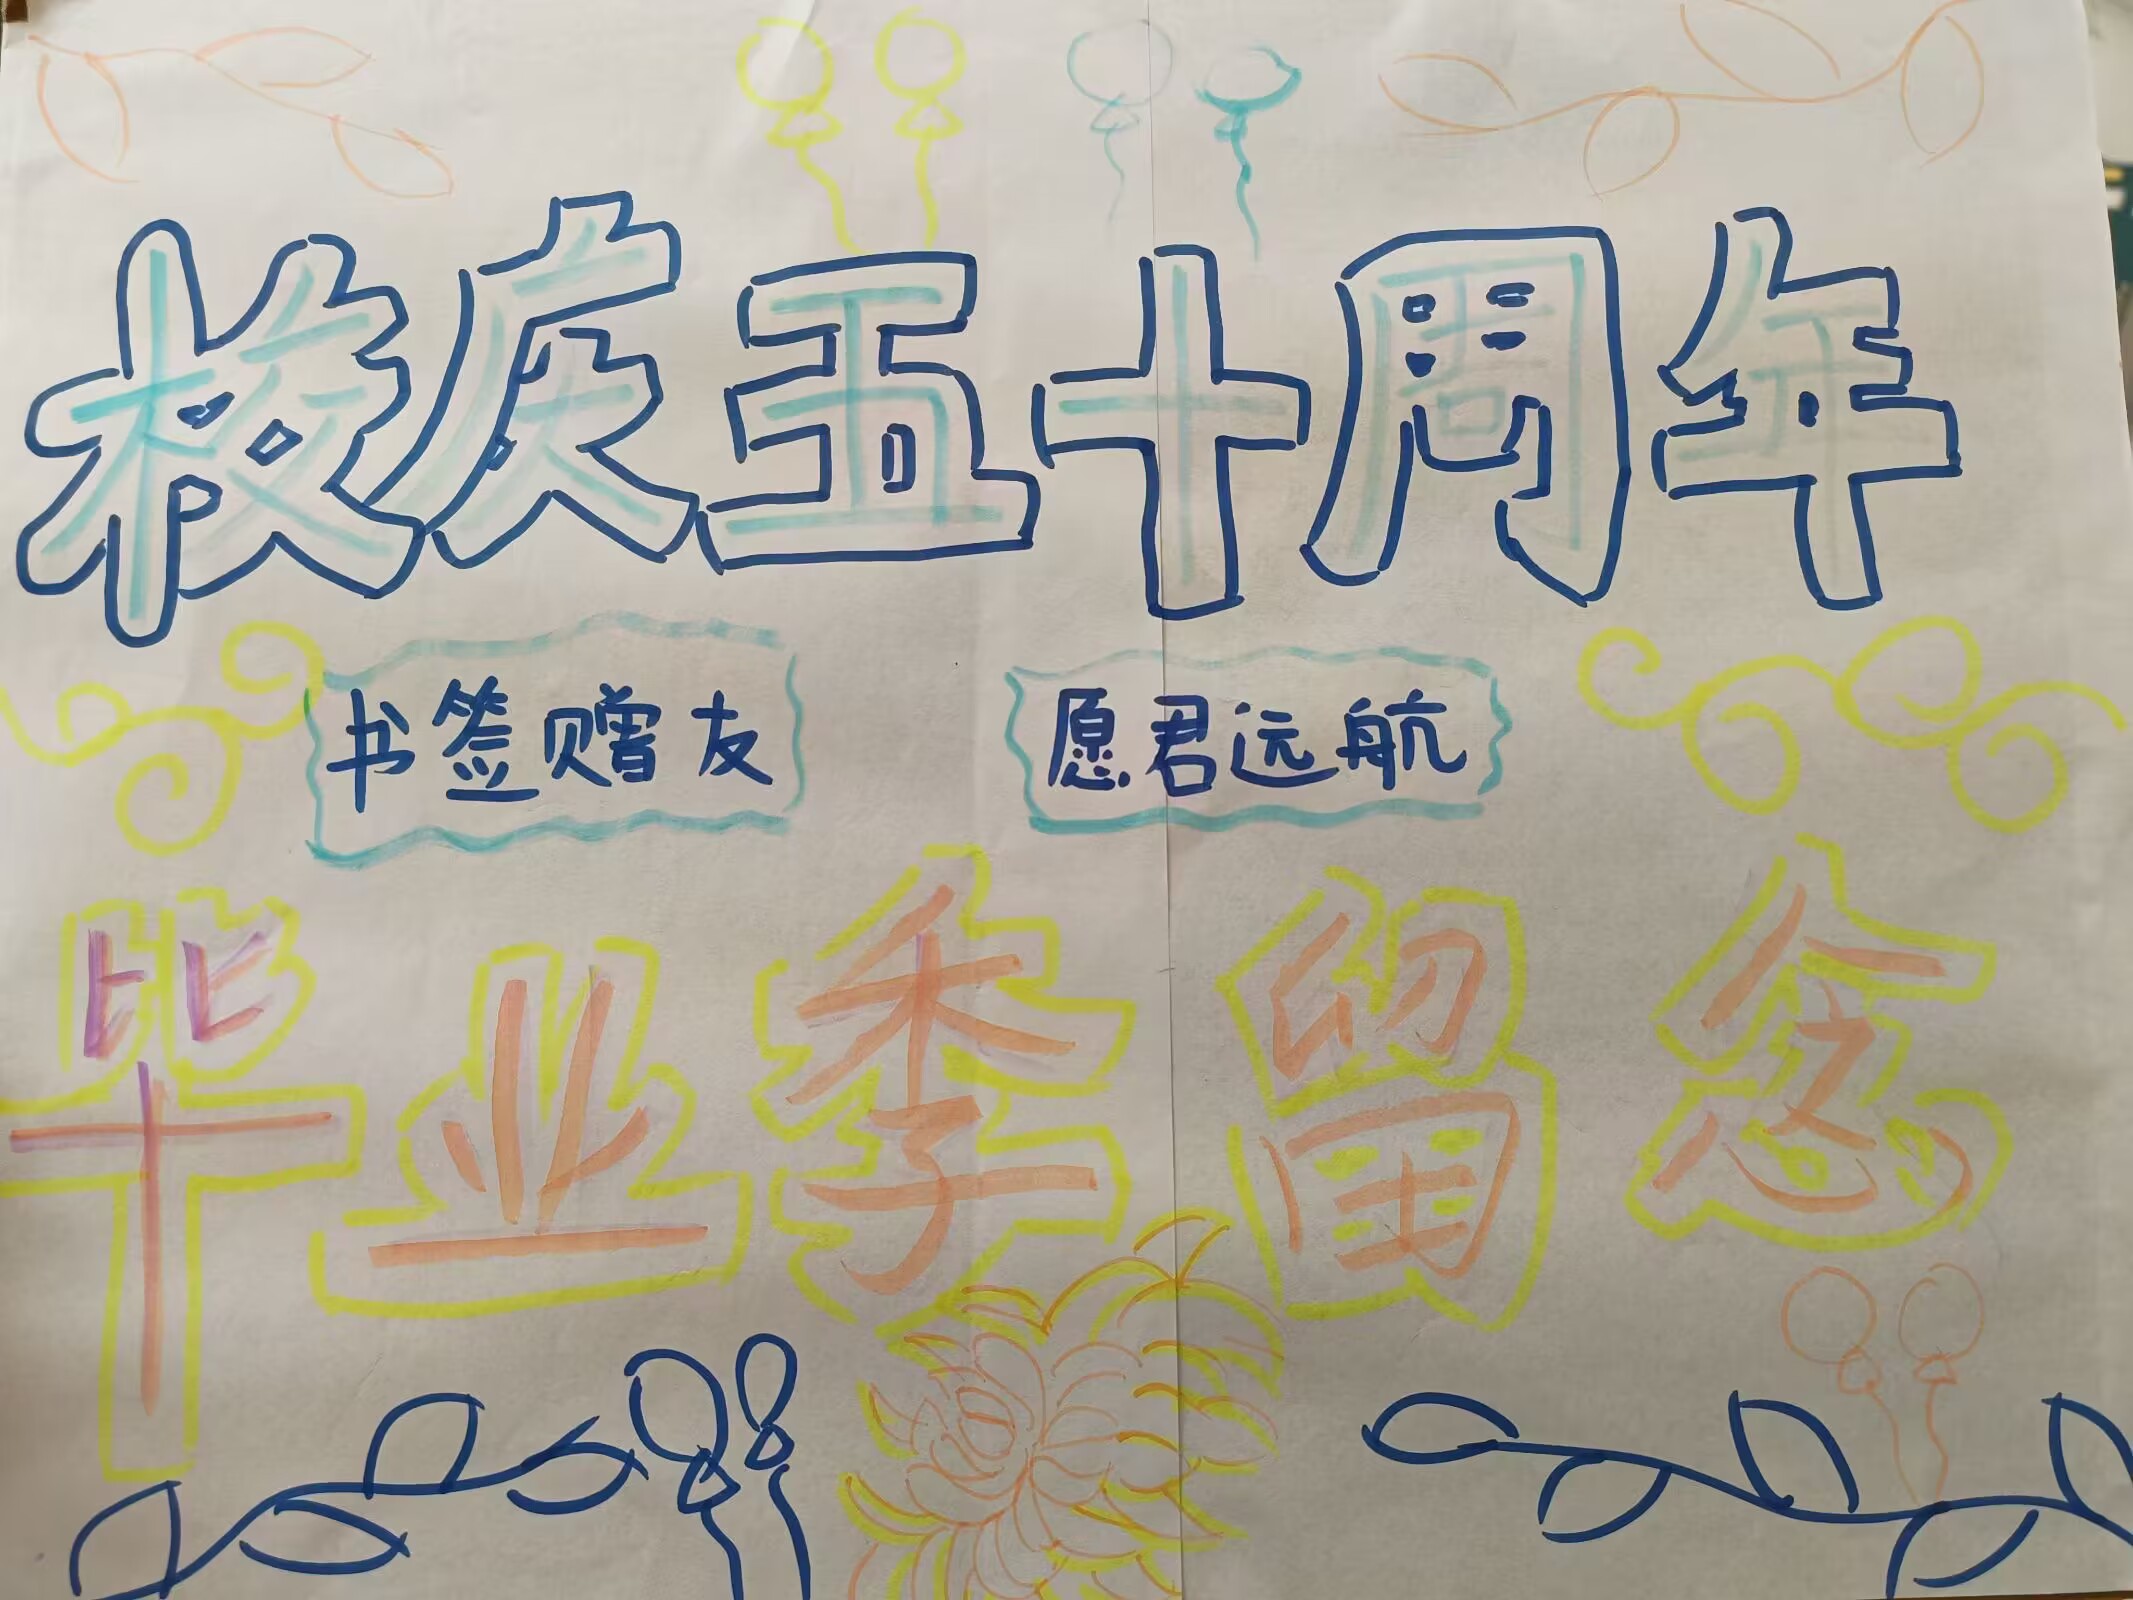 校庆五十周年
书签赠友 愿君远航
毕业季留念